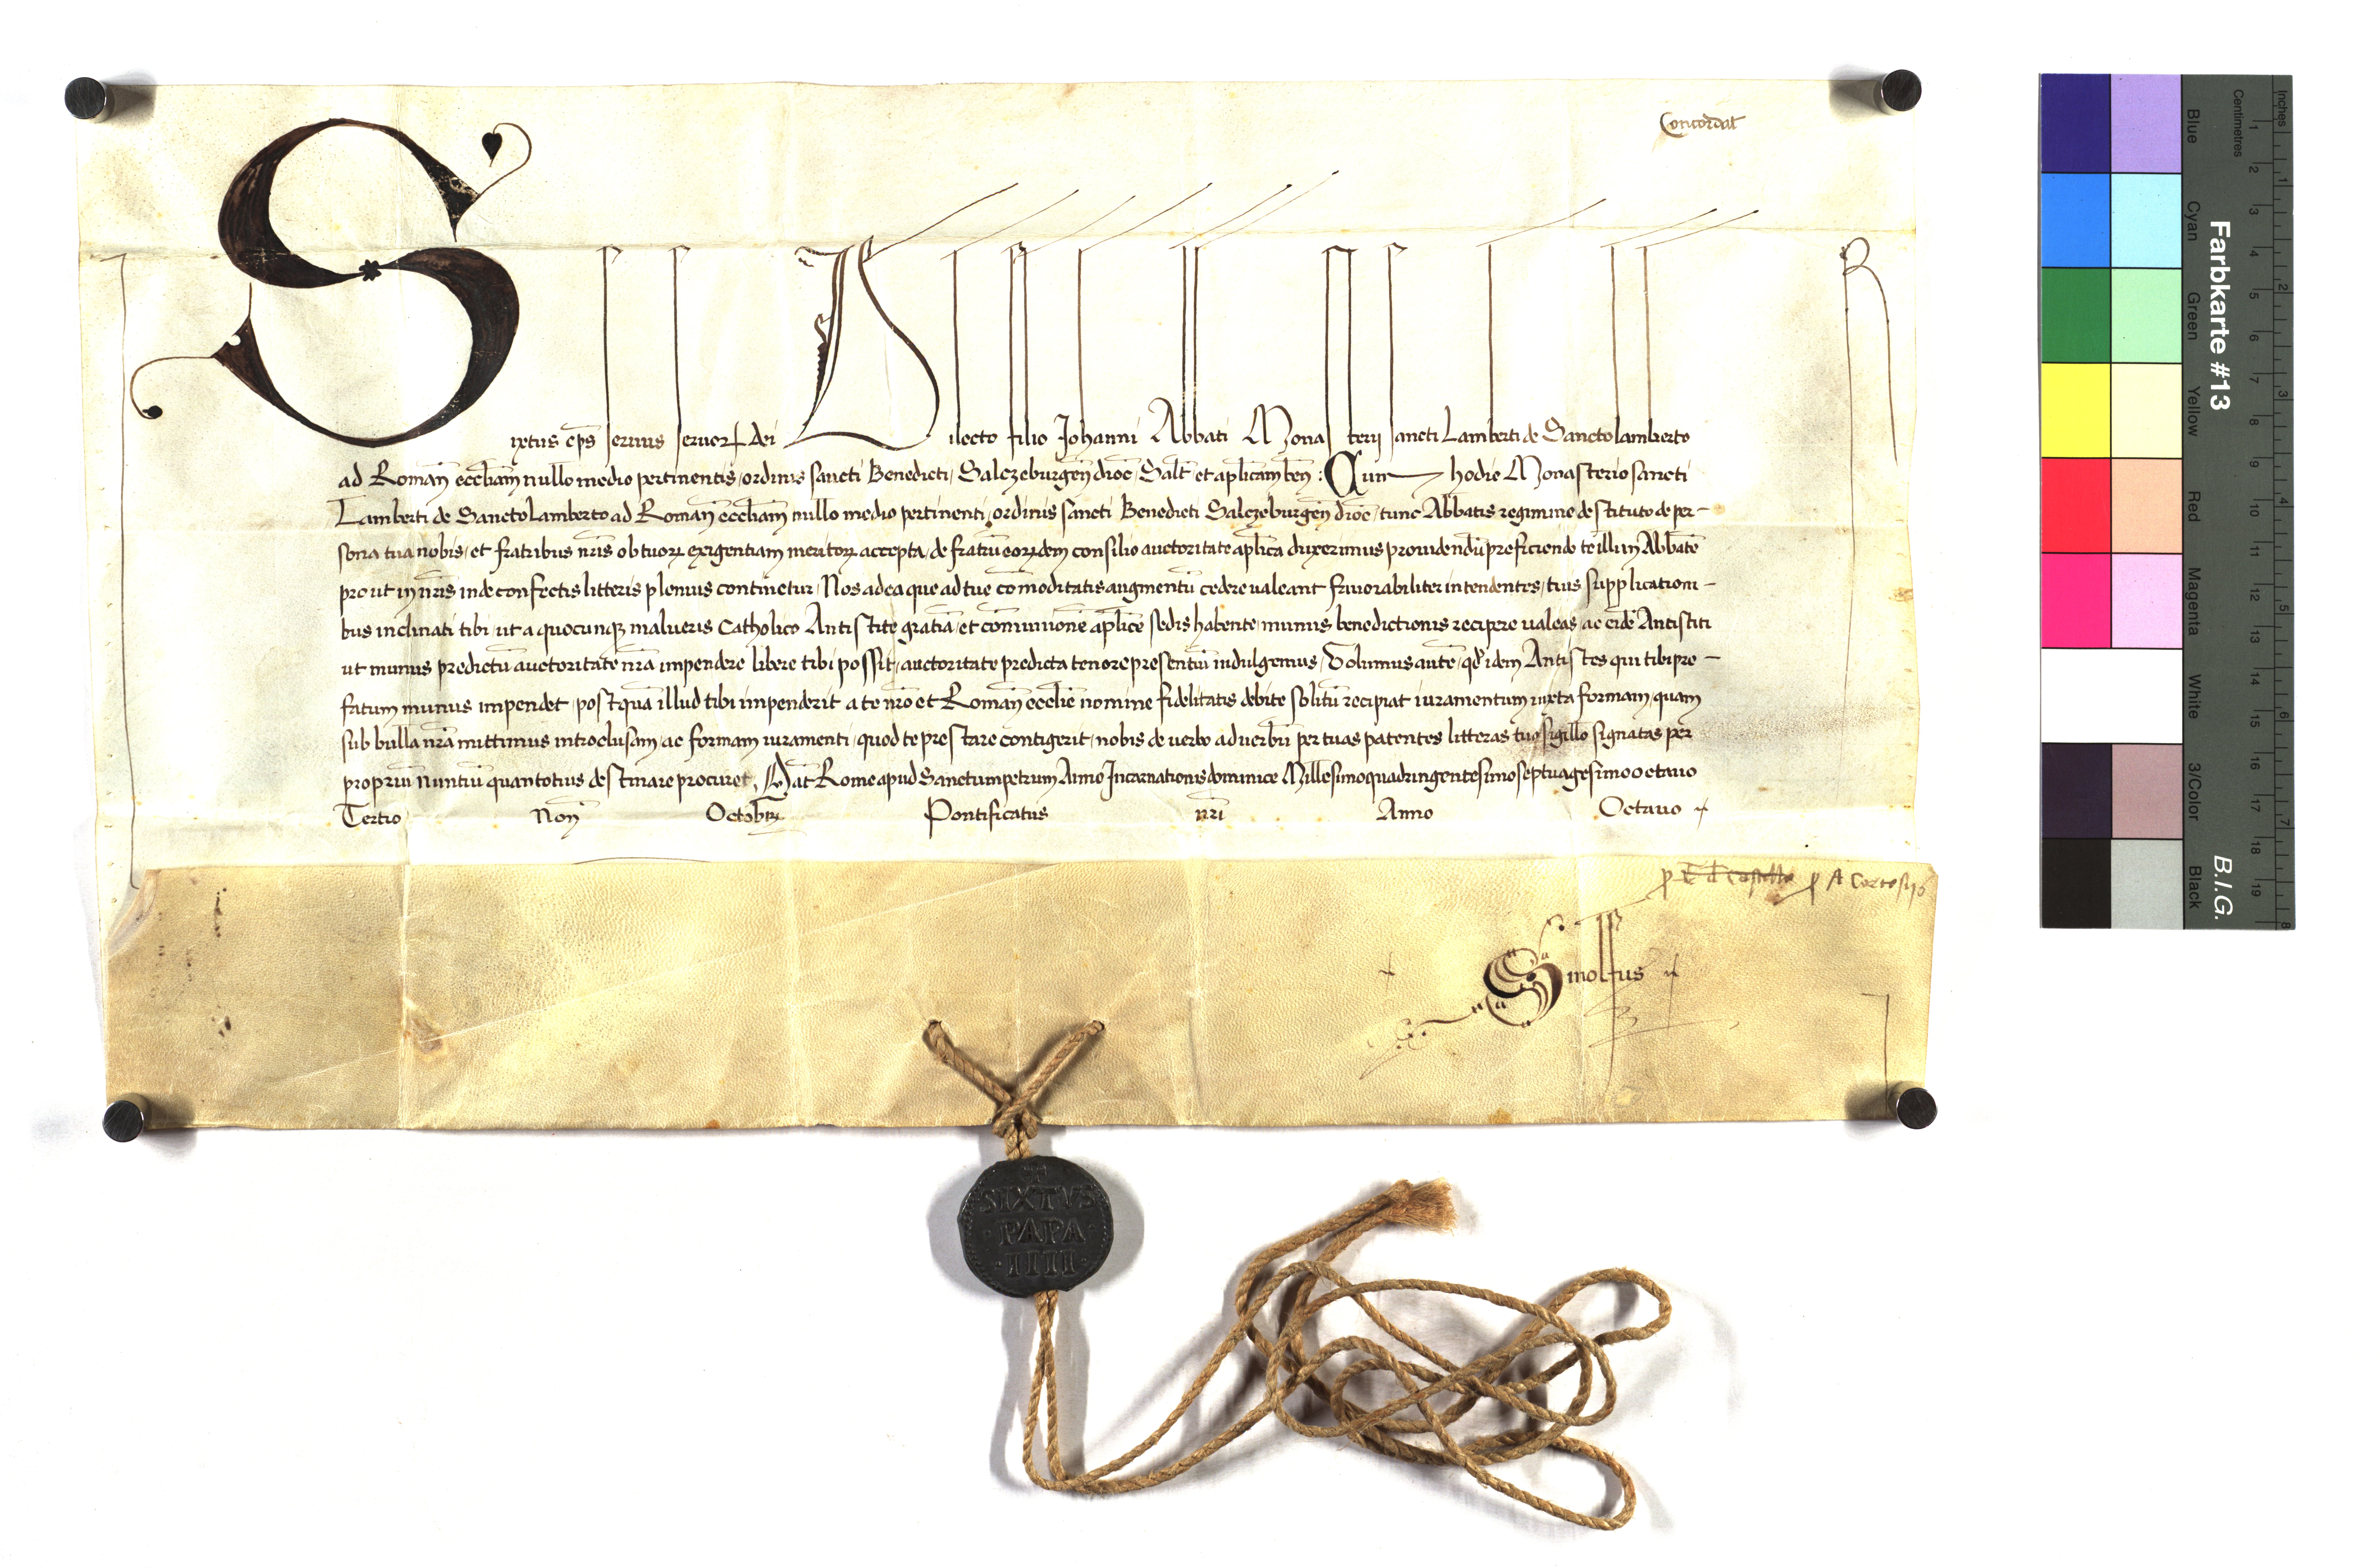 Concordat
Sixtus ep̄s seruus seruoꝝ dei Dilecto filio Johanni Abbati Monasterij sancti Lamberti de Sanctolamberto
ad Romanā eccl̄iam nullo medio pertinentis, ordinis sancti Benedicti, Salczeburgen̄ dioc̄, Salt̄ et apl̄icam ben̄: Cum hodie Monasterio sancti
Lamberti de Sanctolamberto ad Romanā eccl̄iam nullo medio pertinenti, ordinis sancti Benedicti Salczeburgen̄ dioc̄, tunc Abbatis regimine destituto de per-
sona tua nobis, et fratribus nr̄is ob tuoꝝ exigentiam meritoꝝ accepta, de fratrū eoꝝdem consilio auctoritate apl̄ica duxerimus prouidendū preficiendo te illi in Abbatē
prout in nr̄is inde confectis litteris plenius continetur, Nos ad ea que ad tue cōmoditatis augmentū cedere ualeant fauorabiliter intendentes, tuis supplicationi-
bus inclinati tibi, ut a quocunqꝫ malueris Catholico Antistite gratiā, et cōmunionē apl̄ice sedis habente, munus benedictionis recipere ualeas, ac eidē Antistiti
ut munus predictū auctoritate nr̄a impendere libere tibi possit, auctoritate predicta tenore presentiū indulgemus, Volumus autē, qd̄ idem Antistes qui tibi pre-
fatum munus impendet, postquā illud tibi impenderit a te nr̄o et Romanē eccl̄ie nomine fidelitatis debite solitū recipiat iuramentum iuxta formam, quam
sub bulla nr̄a mittimus introclusam, ac formam iuramenti, quod te prestare contigerit, nobis de uerbo ad uerbū per tuas patentes litteras tuo sigillo signatas per
propriū nuntiū quantotius destinare procuret, Dat̄ Rome apud Sanctumpetrum Anno Incarnationis dominice Millesimoquadringentesimoseptuagesimooctauo
Tertio Non̄ Octobrꝭ Pontificatus nr̄i Anno Octauo
ꝓ A Cortosijs
Sinolfus
SIXTVS
·PAPA·
·IIII·
Inches
Centimetres
Farbkarte #13
B.I.G.
Blue
Cyan
Green
Yellow
Red
Magenta
White
3/Color
Black
1 2 3 4 5 6 7 8 9 10 11 12 13 14 15 16 17 18 19
1 2 3 4 5 6 7 8